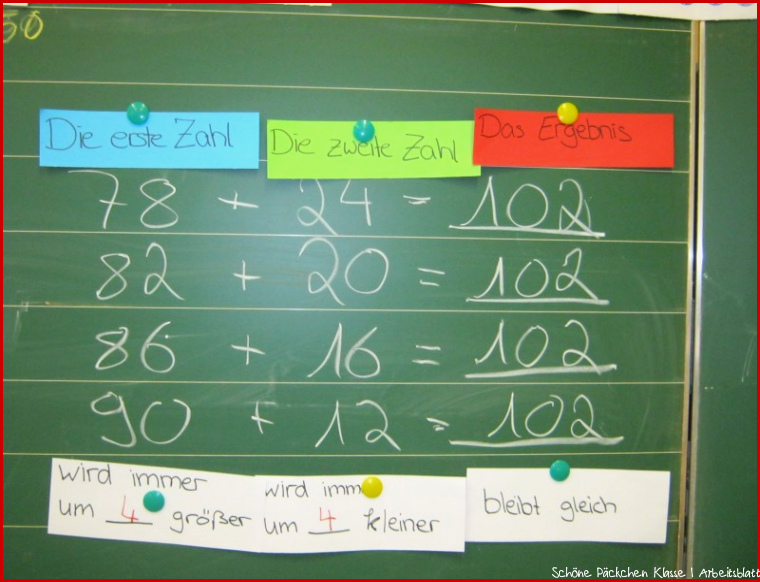 50
Die erste Zahl Die zweite Zahl Das Ergebnis
78 + 24 = 102
82 + 20 = 102
86 + 16 = 102
90 + 12 = 102
wird immer
um 4 größer
wird imm
um 4 kleiner
bleibt gleich
Schöne Päckchen Klasse 1 Arbeitsblatt